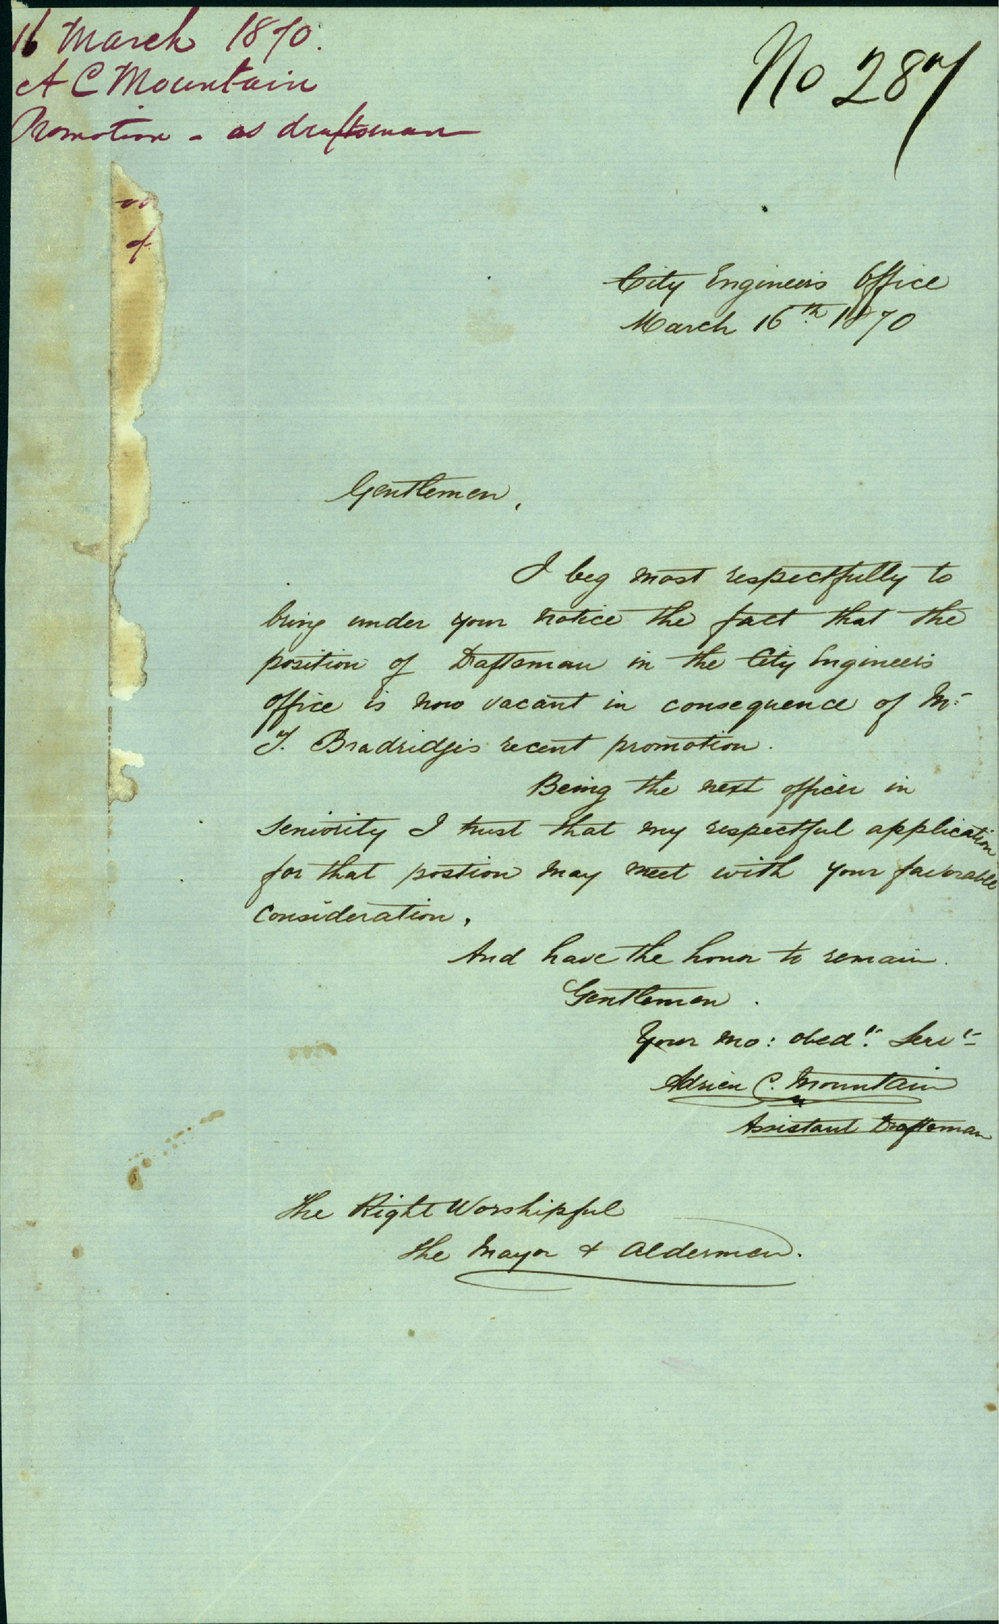 16 March 1870.
A C Mountain
Promotion - as draftsman
No 287
of
City Engineers Office
March 16th 1870
Gentlemen,
I beg most respectfully to
bring under your notice the fact that the
position of Draftsman in the City Engineers
office is now vacant in consequence of Mr
T. Bradridge's recent promotion.
Being the next officer in
seniority I trust that my respectful application
for that postion may meet with your favorable
consideration,
And have the honor to remain.
Gentlemen.
Your mo: obedt: Servt
Adrien C. Mountain
Assistant Draftsman
The Right Worshipful
the Mayor & Aldermen.